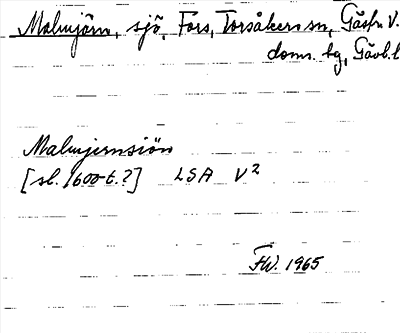 Malmjärn, sjö, Fors, Torsåkers sn, Gästr. V.
doms. tg, Gävl. l
Malmjernsiön
[sl. 1600-t.?] LSA V2
FW. 1965